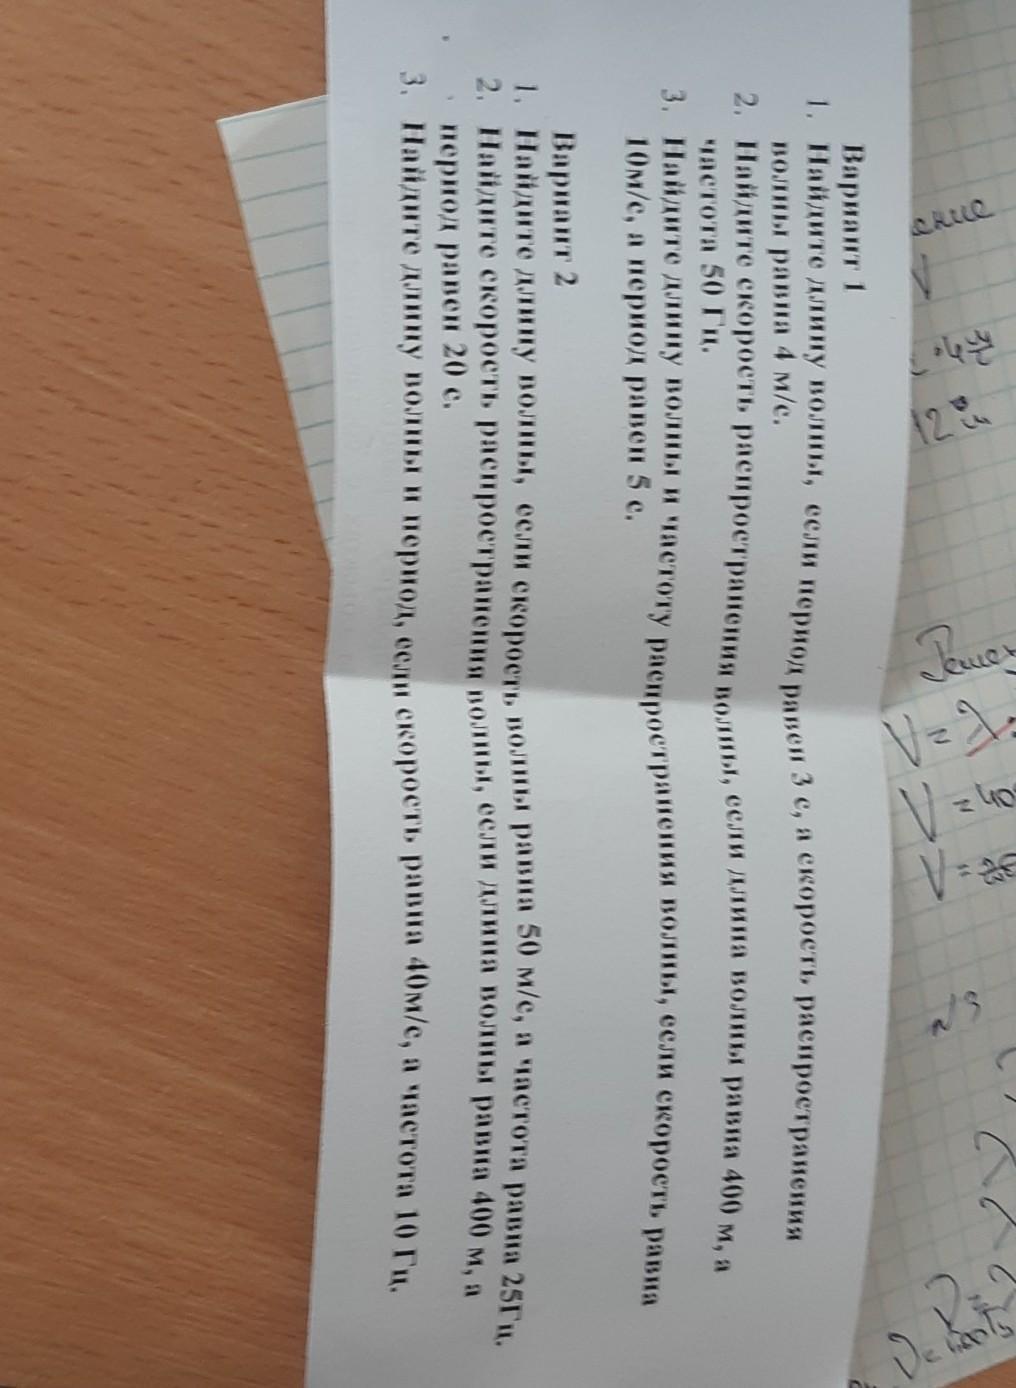 Вариант 1
1. Найдите длину волны, если период равен 3 с, а скорость распространения
волны равна 4 м/с.
2. Найдите скорость распространения волны, если длина волны равна 400 м, а
частота 50 Гц.
3. Найдите длину волны и частоту распространения волны, если скорость равна
10м/с, а период равен 5 с.
Вариант 2
1. Найдите длину волны, если скорость волны равна 50 м/с, а частота равна 25Гц.
2. Найдите скорость распространения волны, если длина волны равна 400 м, а
период равен 20 с.
3. Найдите длину волны и период, если скорость равна 40м/с, а частота 10 Гц.
ение
V
12
V = λ
V = 40
V =